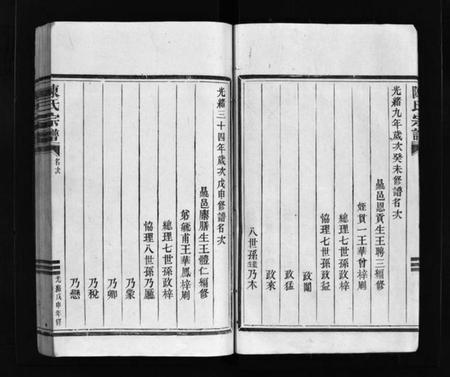 陳氏宗譜
光緒九年歲次癸未修譜名次
邑恩貢生王聘三編修
姪貫一王華曾梓刷
總理七世孫政梓
協理七世孫政益
政閣
政猛
政來
八世孫乃木
光緒三十四年歲次戊申修譜名次
邑廩膳生王體仁編修
弟毓甫王華鳳梓刷
總理七世孫政梓
協理八世孫乃
乃象
乃卿
乃稅
乃戀
陳氏宗譜
名次
光緒戊申年修